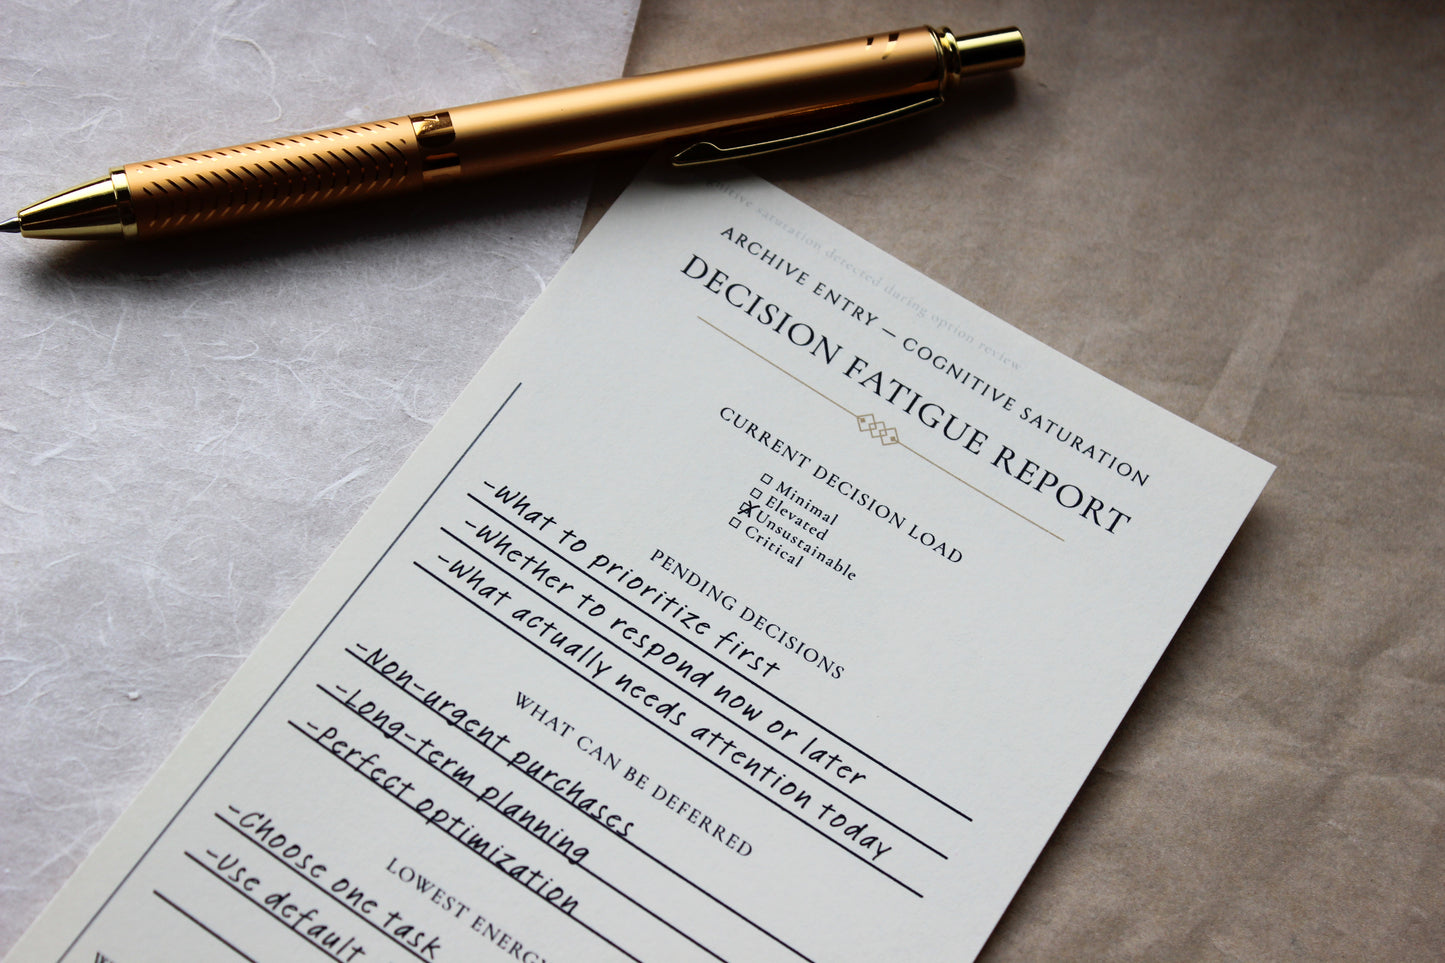 saturation detected during option review
ARCHIVE ENTRY – COGNITIVE SATURATION
DECISION FATIGUE REPORT
CURRENT DECISION LOAD
Minimal
Elevated
Unsustainable
Critical
PENDING DECISIONS
-What to prioritize first
-Whether to respond now or later
-What actually needs attention today
WHAT CAN BE DEFERRED
-Non-urgent purchases
-Long-term planning
-Perfect optimization
LOWEST
-Choose one task
-Use default